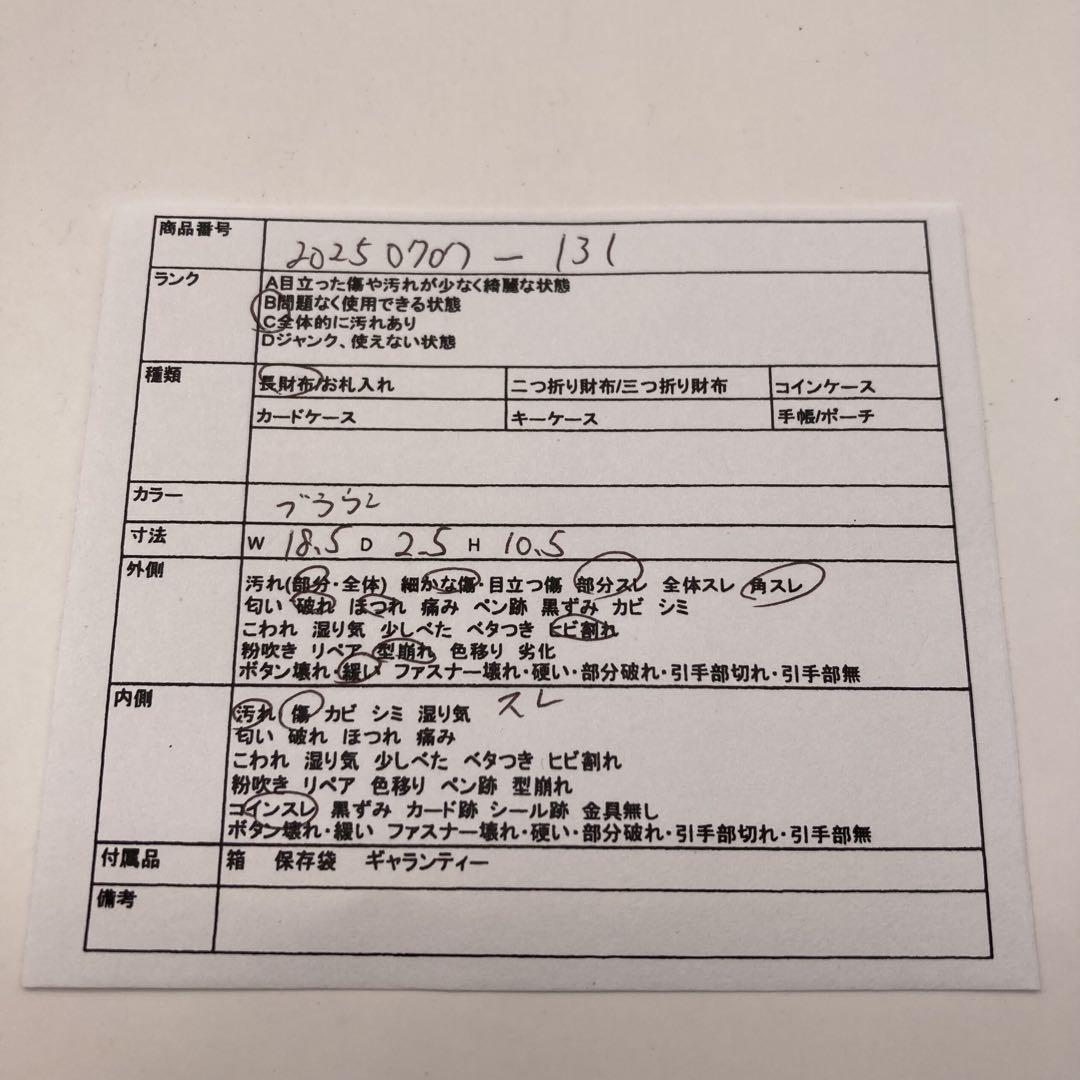 商品番号 20250707-131
ランク A目立った傷や汚れが少なく綺麗な状態
B問題なく使用できる状態
C全体的に汚れあり
Dジャンク、使えない状態
種類 長財布/お札入れ 二つ折り財布/三つ折り財布 コインケース
カードケース キーケース 手帳/ポーチ
カラー ブラウン
寸法 W 18.5 D 2.5 H 10.5
外側 汚れ(部分・全体) 細かな傷・目立つ傷 部分スレ 全体スレ 角スレ
匂い 破れ ほつれ 痛み ペン跡 黒ずみ カビ シミ
こわれ 湿り気 少しべた ベタつき ヒビ割れ
粉吹き リペア 型崩れ 色移り 劣化
ボタン壊れ・緩い ファスナー壊れ・硬い・部分破れ・引手部切れ・引手部無
内側 汚れ 傷 カビ シミ 湿り気 スレ
匂い 破れ ほつれ 痛み
こわれ 湿り気 少しべた ベタつき ヒビ割れ
粉吹き リペア 色移り ペン跡 型崩れ
コインスレ 黒ずみ カード跡 シール跡 金具無し
ボタン壊れ・緩い ファスナー壊れ・硬い・部分破れ・引手部切れ・引手部無
付属品 箱 保存袋 ギャランティー
備考